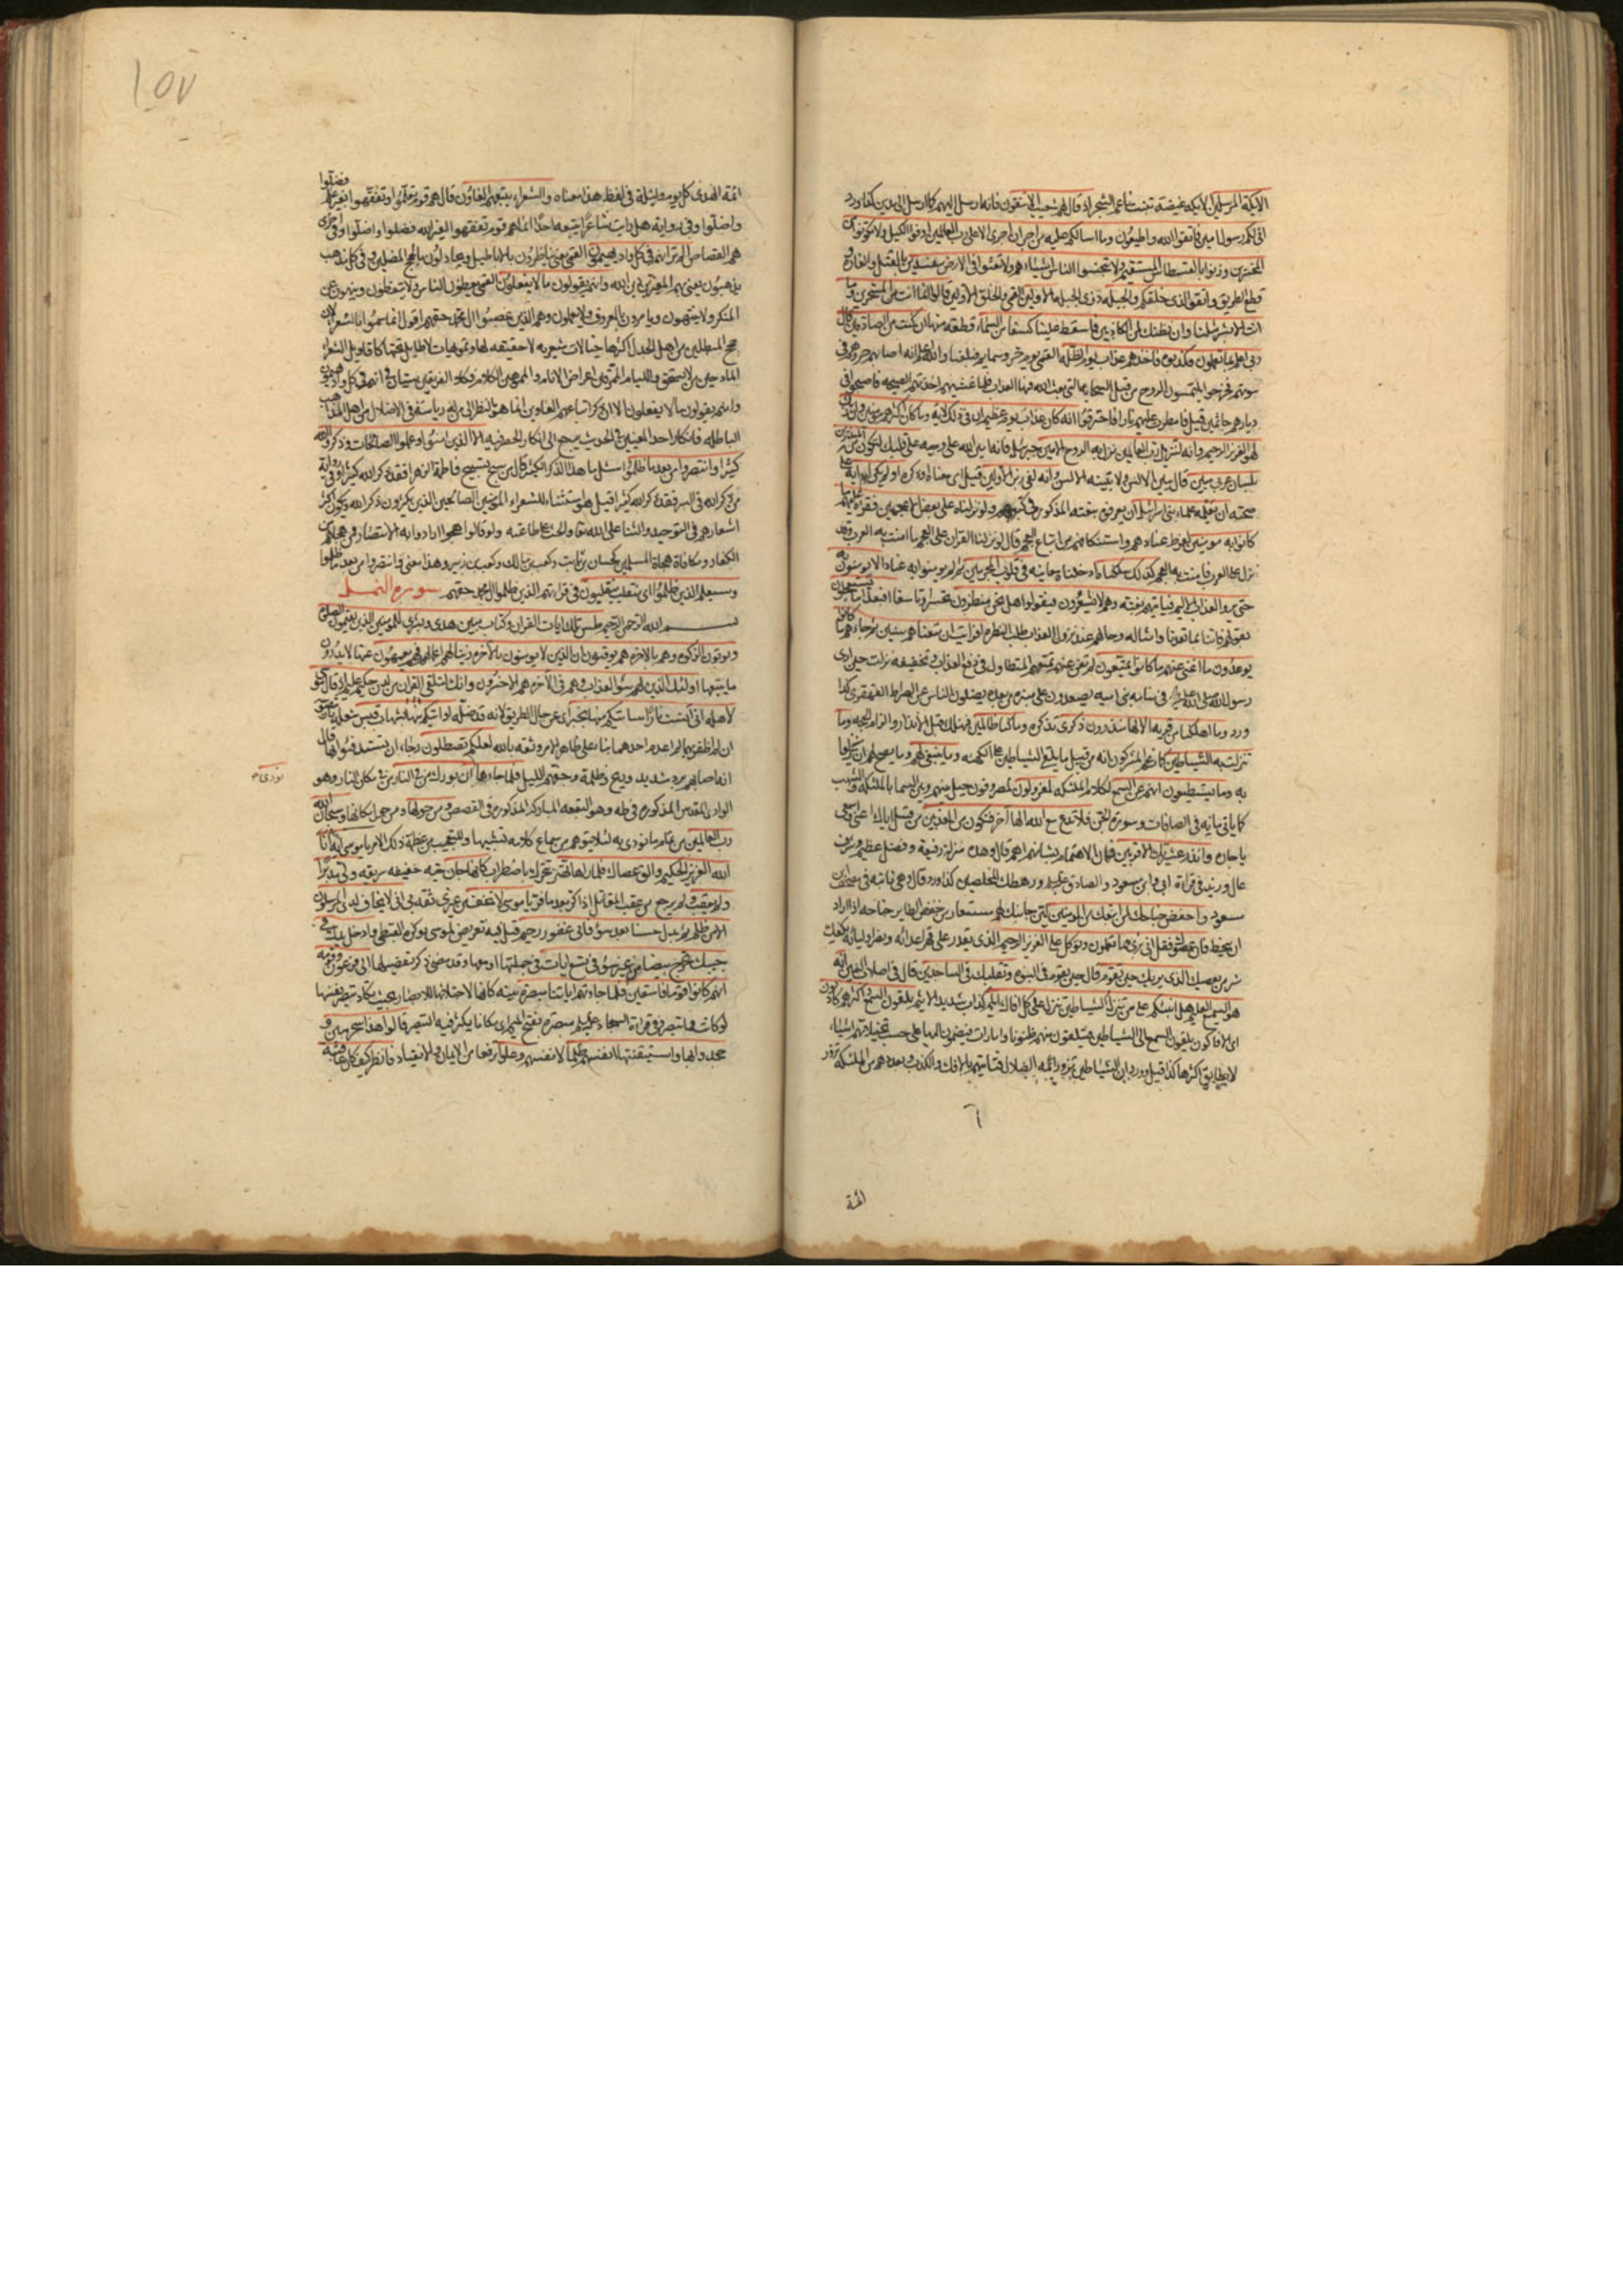 الايكة المرسلين الايكة غيضة تنبت ناعم الشجر اذ قال لهم شعيب الا تتقون فانه ارسل اليهم كما ارسل الى مدين كذا ورد
انى لكم رسول امين فاتقوا الله واطيعون وما اسالكم عليه من اجر ان اجرى الا على رب العالمين اوفوا الكيل ولا تكونوا من
المخسرين وزنوا بالقسطاس المستقيم ولا تبخسوا الناس اشياءهم ولا تعثوا فى الارض مفسدين بالقتل والغارة و
قطع الطريق واتقوا الذى خلقكم والجبلة ذوى الجبلة الاولين القمى والخلق الاولين قالوا انما انت من المسحرين وما
انت الا بشر مثلنا وان نظنك لمن الكاذبين فاسقط علينا كسفا من السماء قطعة منها ان كنت من الصادقين قال
ربى اعلم بما تعملون فكذبوه فاخذهم عذاب يوم الظلة القمى يوم حر وسمايم فبلغنا والله اعلم انه اصابهم حر وهم فى
بيوتهم فخرجوا يلتمسون الروح من قبل السحابة التى بعث الله فيها العذاب فلما غشيتهم اخذتهم الصيحة فاصبحوا فى
ديارهم جاثمين قيل فامطرت عليهم نارا فاحترقوا انه كان عذاب يوم عظيم ان فى ذلك لاية وما كان اكثرهم مؤمنين وان ربك
لهو العزيز الرحيم وانه لتنزيل رب العالمين نزل به الروح الامين جبرئيل فانه امين الله على وحيه على قلبك لتكون من المنذرين
بلسان عربى مبين قال يبين الالسن ولا تبينه الالسن وانه لفى زبر الاولين قيل اى معناه او ذكره اولم يكن لهم اية على
صحته ان يعلمه علماء بنى اسرائيل ان يعرفوه بنعته المذكور فى كتبهم ولو نزلناه على بعض الاعجمين فقراه عليهم ما
كانوا به مؤمنين لفرط عنادهم واستنكافهم من اتباع العجم قال لو نزلنا القران على العجم ما امنت به العرب وقد
نزل على العرب فامنت به العجم كذلك سلكناه ادخلناه معاينه فى قلوب المجرمين ثم لم يؤمنوا به عنادا لا يؤمنون به
حتى يروا العذاب الاليم فياتيهم بغتة وهم لا يشعرون فيقولوا هل نحن منظرون تحسرا وتاسفا افبعذابنا يستعجلون
بقولهم فاتنا بما تعدنا وامثاله وحالهم عند نزول العذاب طلب النظرة افرايت ان متعناهم سنين ثم جاءهم ما كانوا
يوعدون ما اغنى عنهم ما كانوا يمتعون لم تغن عنهم تمتعهم المتطاول فى دفع العذاب وتخفيفه نزلت حين ارى
رسول الله صلى الله عليه واله فى منامه بنى امية يصعدون على منبره من بعده يضلون الناس عن الصراط القهقرى كذا
ورد وما اهلكنا من قرية الا لها منذرون ذكرى تذكرة وما كنا ظالمين فنهلك قبل الانذار والزام الحجة وما
تنزلت به الشياطين كما زعم المشركون انه من قبيل ما يلقى الشياطين على الكهنة وما ينبغى لهم وما يصح لهم ان يتنزلوا
به وما يستطيعون انهم عن السمع لكلام الملئكة لمعزولون لمصروفون حيل بينهم وبين السماء بالملئكة والشهب
كما ياتى بيانه فى الصافات وسورة الجن فلا تدع مع الله الها اخر فتكون من المعذبين من قبيل اياك اعنى واسمعى
يا جاره وانذر عشيرتك الاقربين فان الاهتمام بشانهم اهم قال وهذه منزلة رفيعة وفضل عظيم وشرف
عال وزيد فى قراءة ابى وابن مسعود والصادق عليه السلم ورهطك المخلصين كذا ورد قال وهى ثابتة فى مصحف ابن
مسعود واخفض جناحك لمن اتبعك من المؤمنين لين جانبك لهم مستعار من خفض الطاير جناحه اذا اراد
ان ينحط فان عصوك فقل انى برىء مما تعملون وتوكل على العزيز الرحيم الذى يقدر على قهر اعدائه ونصر اوليائه يكفيك
شر من يعصيك الذى يريك حين تقوم قال حين تقوم فى النبوة وتقلبك فى الساجدين قال فى اصلاب النبيين انه
هو السميع العليم هل انبئكم على من تنزل الشياطين تنزل على كل افاك اثيم كذاب شديد الاثم يلقون السمع واكثرهم كاذبون
اى الافاكون يلقون السمع الى الشياطين فيتلقون منهم ظنونا وامارات فيضمون اليها على حسب تخيلاتهم اشياء
لا يطابق اكثرها كذا قيل وورد ان الشياطين تزور ائمة الضلال فتاتيهم بالافك والكذب بعدد من الملئكة تزور
ائمة
١٥٧
ائمة الهدى كل يوم وليلة فى لفظ هذا معناه والشعراء يتبعهم الغاوون قال هم قوم تعلموا وتفقهوا بغير علم فضلوا
واضلوا وفى رواية هل رايت شاعرا يتبعه احد انما هم قوم تفقهوا لغير الله فضلوا واضلوا وفى اخرى
هم القصاص الم تر انهم فى كل واد يهيمون القمى يعنى يناظرون بالاباطيل ويجادلون بالحجج المضلين وفى كل مذهب
يذهبون يعنى بهم المغيرين دين الله وانهم يقولون ما لا يفعلون القمى يعظون الناس ولا يتعظون وينهون عن
المنكر ولا ينتهون ويامرون بالمعروف ولا يعملون وهم الذين غصبوا ال محمد حقهم اقول انما سموا بالشعراء لان
حجج المبطلين من اهل الجدل اكثرها خيالات شعرية لا حقيقة لها وتمويهات لا طائل تحتها كاقاويل الشعراء
وانهم يقولون ما لا يفعلون الا ان ذكر اتباعهم الغاوين انما هو بالنظر الى من له رياسة فى الاضلال من اهل المذاهب
الباطلة فانكار احد المعنيين فى الحديث يرجع الى انكار الحصر فيه الا الذين امنوا وعملوا الصالحات وذكروا الله
كثيرا وانتصروا من بعد ما ظلموا سئل ما هذا الذكر الكثير قال من سبح تسبيح فاطمة الزهراء فقد ذكر الله كثيرا وفى رواية
من ذكر الله فى السر فقد ذكر الله كثيرا قيل هو استثناء للشعراء المؤمنين الصالحين الذين يكثرون ذكر الله ويكون اكثر
اشعارهم فى التوحيد والثناء على الله تعالى والحث على طاعته ولو قالوا هجوا ارادوا به الانتصار ممن هجاهم من
الكفار ومكافاة هجاة المسلمين كحسان بن ثابت وكعب بن مالك وكعب بن زهير وهذا معنى وانتصروا من بعد ما ظلموا
وسيعلم الذين ظلموا اى منقلب ينقلبون فى قراءتهم الذين ظلموا ال محمد حقهم سورة النمل
بسم الله الرحمن الرحيم طس تلك ايات القران وكتاب مبين هدى وبشرى للمؤمنين الذين يقيمون الصلوة
ويؤتون الزكوة وهم بالاخرة هم يوقنون ان الذين لا يؤمنون بالاخرة زينا لهم اعمالهم فهم يعمهون عنها لا يدركون
ما يتبعها اولئك الذين لهم سوء العذاب وهم فى الاخرة هم الاخسرون وانك لتلقى القران من لدن حكيم عليم اذ قال موسى
لاهله انى انست نارا ساتيكم منها بخبر اى عن حال الطريق لانه قد ضله او اتيكم بشهاب قبس شعلة نار
ان لم اظفر بهما لم اعدم احدهما بناء على ظاهر الامر وثقة بالله لعلكم تصطلون رجاء ان تستدفئوا بها قال
انه اصابهم برد شديد وريح وظلمة وجنهم الليل فلما جاءها نودى ان بورك من فى النار من فى مكان النار وهو
نودى صح
الوادى المقدس المذكور فى طه وهو البقعة المباركة المذكورة فى القصص ومن حولها ومن حول مكانها وسبحان الله
رب العالمين من تمام ما نودى به لئلا يتوهم من سماع كلامه تشبيها وللتعجيب من عظمة ذلك الامر يا موسى انه انا
الله العزيز الحكيم والق عصاك فلما راها تهتز تتحرك باضطراب كانها جان حية خفيفة سريعة ولى مدبرا
ولم يعقب ولم يرجع من عقب المقاتل اذا كر بعد ما فر يا موسى لا تخف من غيرى ثقة بى انى لا يخاف لدى المرسلون
الا من ظلم ثم بدل حسنا بعد سوء فانى غفور رحيم قيل فيه تعريض لموسى بوكزه القبطى وادخل يدك فى
جيبك تخرج بيضاء من غير سوء فى تسع ايات فى جملتها او معها وقد مضى ذكر تفصيلها الى فرعون وقومه
انهم كانوا قوما فاسقين فلما جاءتهم اياتنا مبصرة بينة كانها لاجتلائها للابصار بحيث تكاد تبصر نفسها
لو كانت مما تبصر وفى قراءة السجاد عليه السلم مبصرة بفتح الميم اى مكانا يكثر فيه التبصر قالوا هذا سحر مبين و
جحدوا بها واستيقنتها انفسهم ظلما لانفسهم وعلوا ترفعا من الايمان والانقياد فانظر كيف كان عاقبة